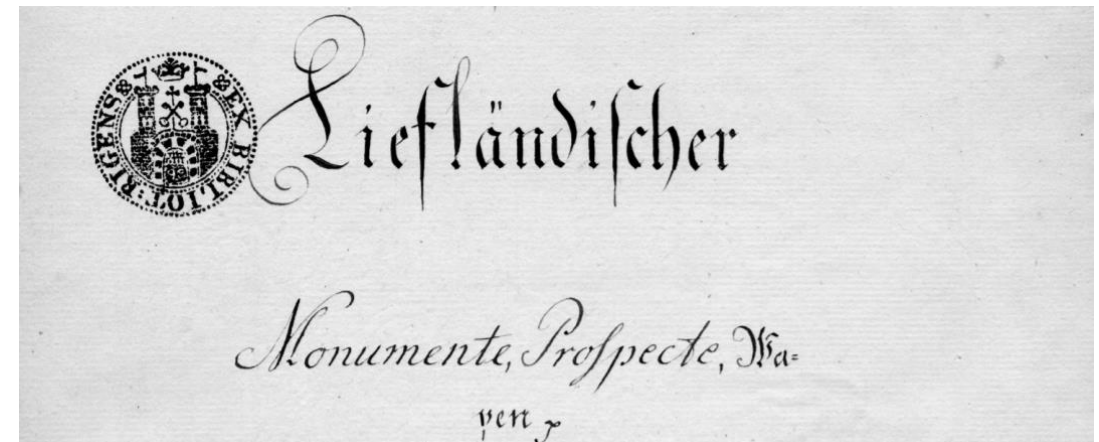 EX BIBLIOT: RIGENS
Liefländiſcher
Monumente, Proſpecte, Wa=
pen